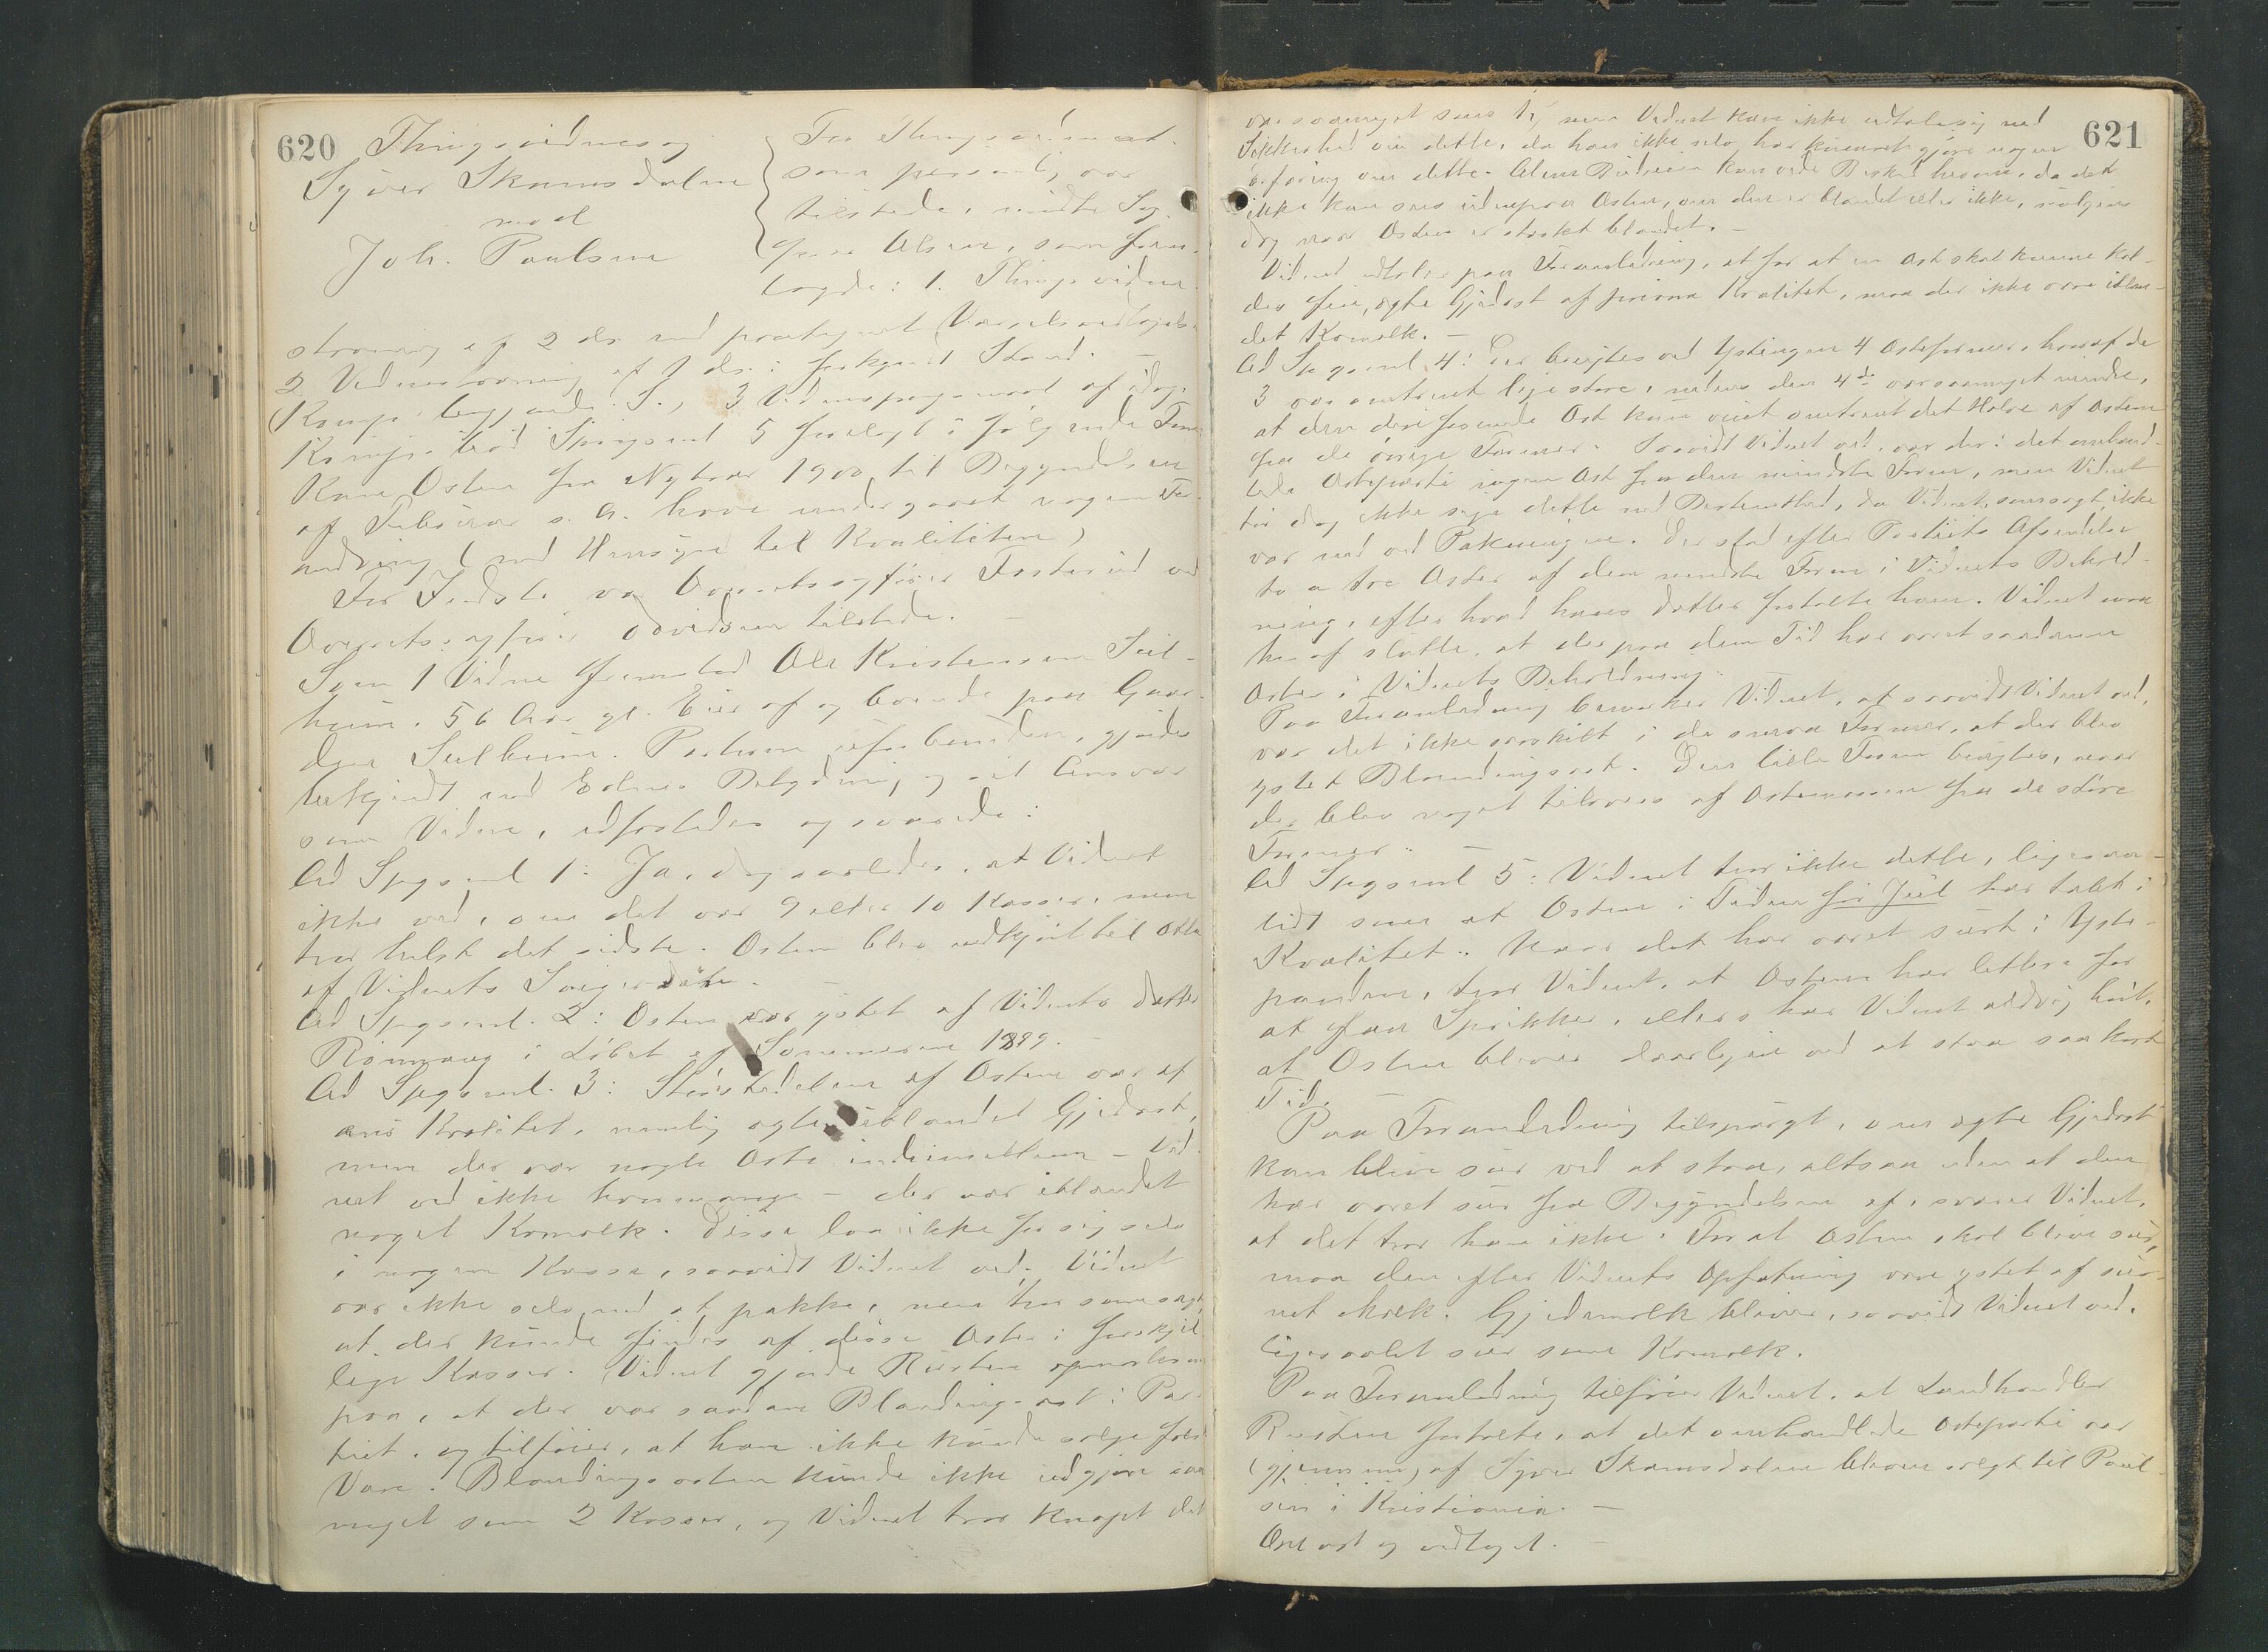 620
Thingsvidnesag
Syver Skamsdalen
mod
Joh. Paulsen
For Thingsvidneret,
som personlig var
tilstede, mødte Sag-
fører Olsen, som frem-
lagde: 1. Thingsvidne-
stævning af 2 ds. med paategnet Varselsvedtagelse
2 Vidnestævning af 9 ds. i forkyndt Stand. —
3 Vidnespørgsmaal af idag.
Spørgsmaal 5 forelagt i følgende Form:
Kan Osten fra Nytaar 1900 til Begyndelsen
af Februar s. A. have undergaaet nogen For-
andring (med Hensyn til Kvaliteten)
For Indste var Overretssagfører Fosterud ved
Overretssagfører Davidsen tilstede. —
Som 1 Vidne fremstod Ole Kristensen Sel-
heim. 56 Aar gl. Eier af og boende paa Gaar-
den Selheim. Parterne uforbunden, gjordes
bekjendt med Edens Betydning og sit Ansvar
som Vidne, edfæstedes og svarede:
Ad Spgsml 1: Ja, dog saaledes, at Vidnet
ikke ved, om det var 9 eller 10 Kasser, men
tror helst det sidste. Osten blev nedkjørt til Otta
af Vidnets Svigersøn. —
Ad Spgsml. 2: Osten var ystet af Vidnets Datter
Rønnaug i Løbet af Sommeren 1899. —
Ad Spgsml. 3: Størstedelen af Osten var af
Kvalitet, nemlig ægte ublandet Gjedost,
men der var nogle Oste indimellem — Vid-
net ved ikke hvormange — der var iblandet
noget Komelk. Disse laa ikke for sig selv
i nogen Kasse, saavidt Vidnet ved. Vidnet
var ikke selv med at pakke, men tror som sagt,
at der kunde findes af disse Oster i forskjel-
lige Kasser. Vidnet gjorde Rusten opmerksom
paa, at der var saadan Blandingsost i Par-
tiet, og tilføier, at han ikke kunde sælge falsk
Vare. Blandingsosten kunde ikke udgjøre saa
meget som 2 Kasser, og Vidnet tror knapt det
621
var saameget som 1½ men Vidnet kan ikke udtale sig med
Sikkerhed om dette, da han ikke selv har kunnet gjøre nogen
Erfaring om dette. Alene Budeien kan vide Besked herom, da det
ikke kan sees udenpaa Osten, om den er blandet eller ikke,
dog naar Osten er stærkt blandet. —
Vidnet udtaler paa Foranledning, at for at en Ost skal kunne kal-
des fin, ægte Gjedost af prima Kvalitet, maa der ikke være iblan-
det Komelk. —
Ad Spgsml 4: Der benyttes ved Ystingen 4 Osteformer, hvoraf de
3 var omtrent lige store, medens den 4de var saameget mindre,
at den deri formede Ost kun veiet omtrent det Halve af Ostene
fra de øvrige Former. Saavidt Vidnet ved, var der i det omhand-
lede Osteparti ingen Ost fra den mindste Form, men Vidnet
tør dog ikke sige dette med Bestemthed, da Vidnet, som sagt, ikke
var med ved Pakningen. Der stod efter Partiets Afsendelse
to a tre Oster af den mindste Form i Vidnets Behold-
ning, efter hvad hans Datter fortalte ham. Vidnet maa
heraf slutte, at der paa den Tid har været saadanne
Oster i Vidnets Beholdning.
Paa Foranledning bemerker Vidnet, at saavidt Vidnet ved,
var det ikke særskilt i de smaa Former, at der blev
ystet Blandingsost. Den lille Form benyttes, naar
der blev noget tilovers af Ostemassen fra de større
Former. —
Ad Spgsml 5: Vidnet tror ikke dette, ligesaa-
lidt som at Osten i Tiden før Jul har tabt i
Kvalitet. Naar det har været surt i Yste-
panden, tror Vidnet, at Osten har lettere for
at faa Sprækker, ellers har Vidnet aldrig hørt,
at Osten bliver daarligere ved at staa saa kort
Tid. —
Paa Foranledning tilspurgt, om ægte Gjedost
kan blive sur ved at staa, altsaa uden at den
har været sur fra Begyndelsen af, svarer Vidnet,
at det tror han ikke. For at Osten skal blive sur,
maa den efter Vidnets Opfatning være ystet af sur-
net Melk. Gjedemelk bliver, saavidt Vidnet ved,
ligesaalet sur som Komelk.
Paa Foranledning tilføier Vidnet, at Landhandler
Rusten fortalte, at det omhandlede Osteparti var
(gjennem) af Syver Skamsdalen bleven solgt til Paul-
sen i Kristiania. —
Oplæst og vedtaget. —